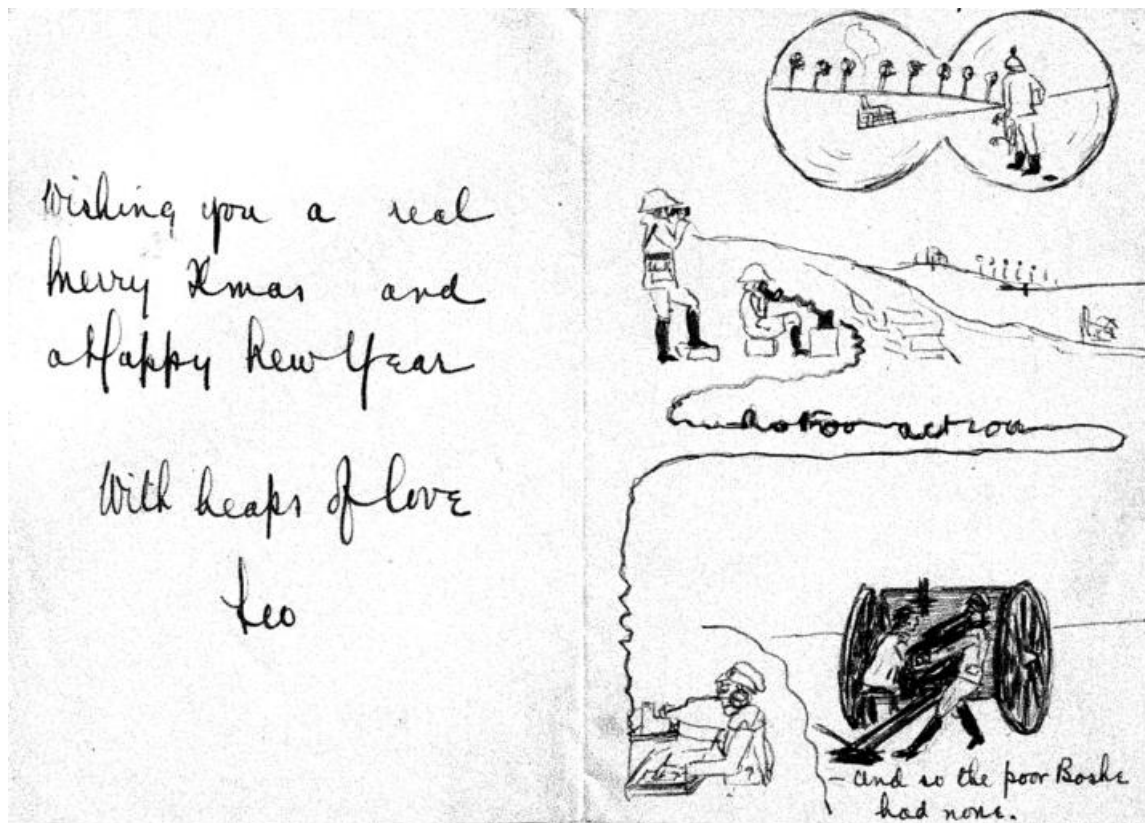 Wishing you a real
Merry Xmas and
a Happy New Year
With heaps of love
Leo
action
– and so the poor Boshe
had none.